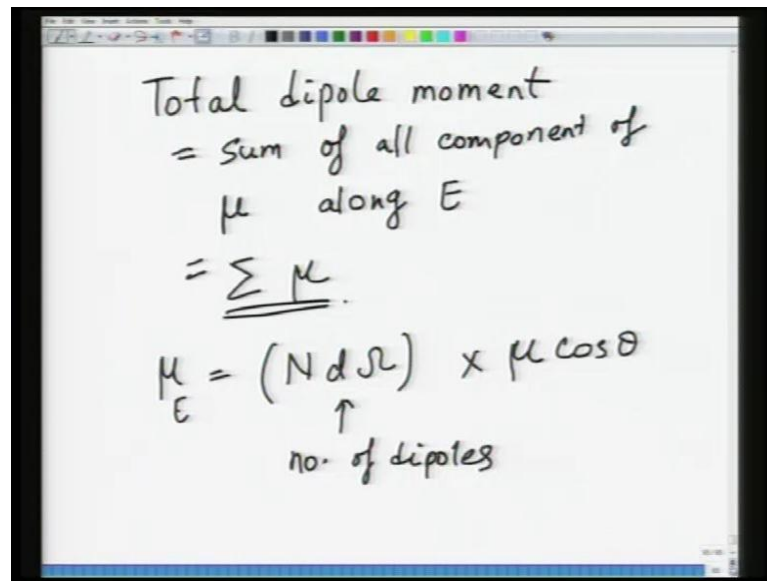 Total dipole moment
= Sum of all component of
μ along E
= Σ μ.
μ_E = (N d Ω) × μ cosθ
↑
no. of dipoles